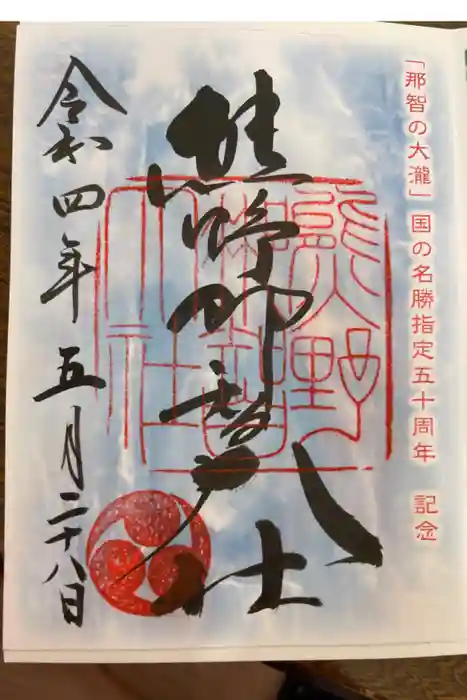 「那智の大瀧」国の名勝指定五十周年 記念
熊野那智大社
令和四年五月二十八日